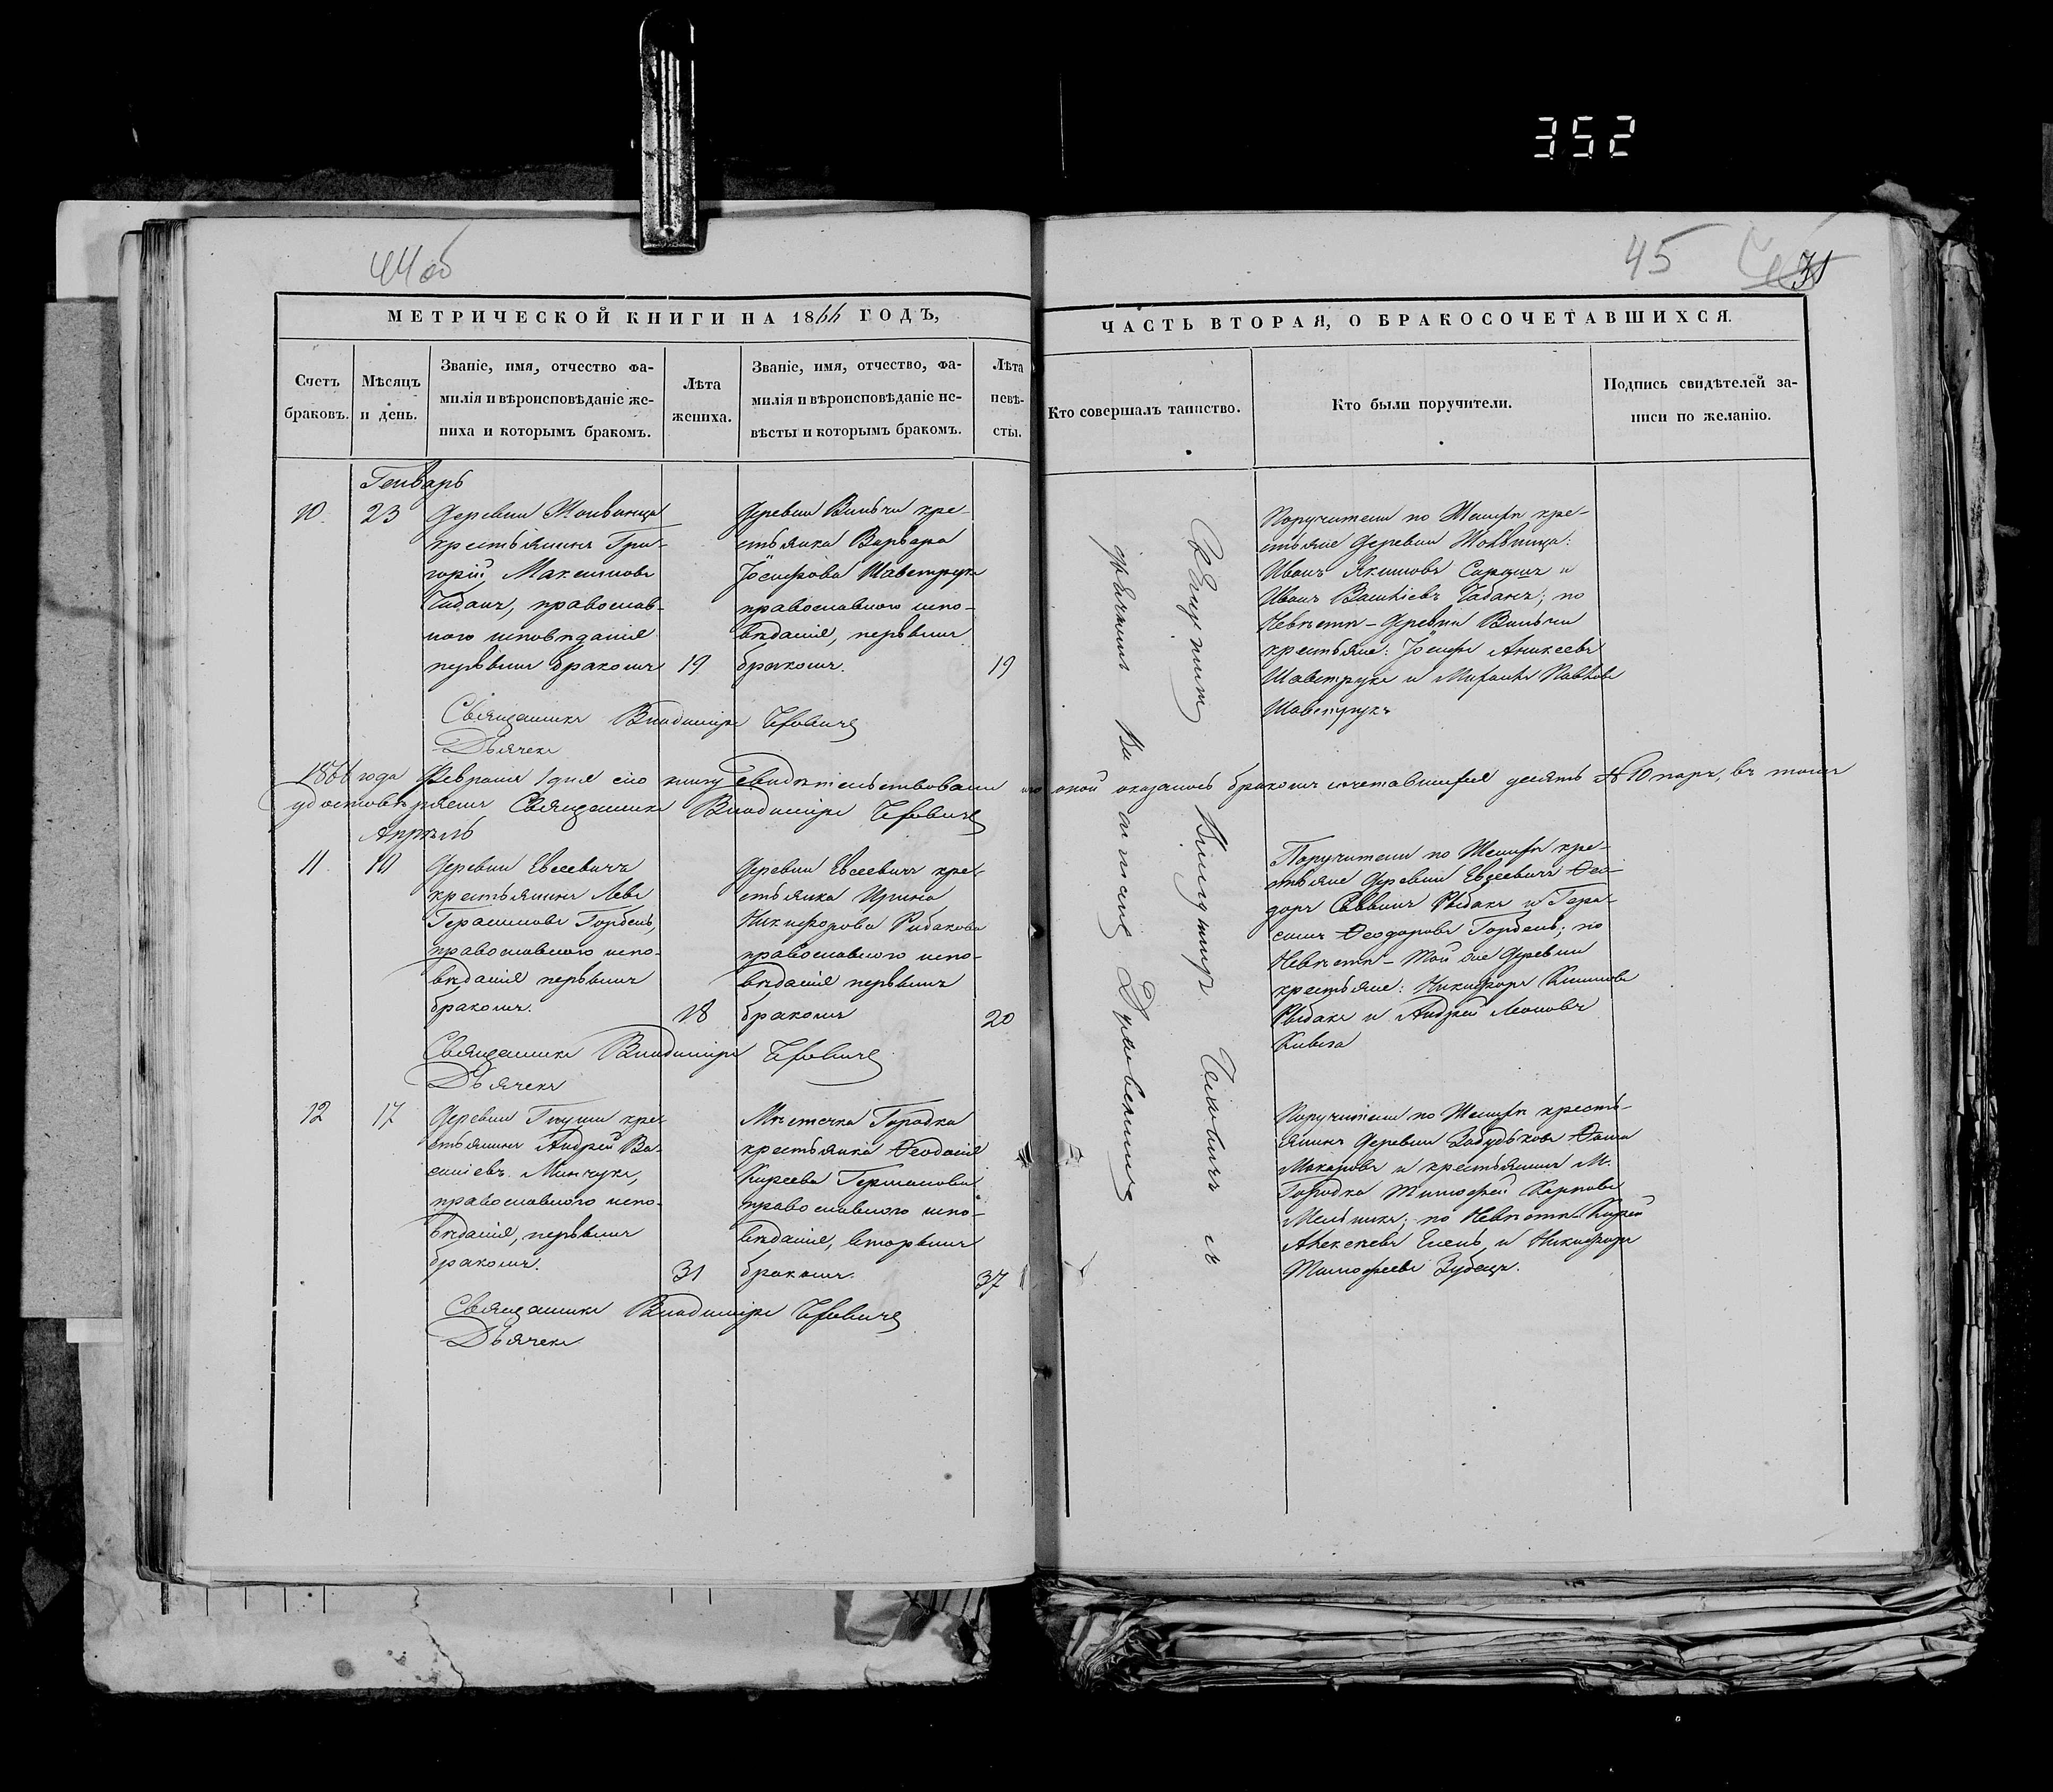 352
44 об
45
31
МЕТРИЧЕСКОЙ КНИГИ НА 1866 ГОДЪ,
ЧАСТЬ ВТОРАЯ, О БРАКОСОЧЕТАВШИХСЯ.
Счетъ
браковъ.
Мѣсяцъ
и день.
Званіе, имя, отчество фа-
милія и вѣроисповѣданіе же-
ниха и которымъ бракомъ.
Лѣта
жениха.
Званіе, имя, отчество, фа-
милія и вѣроисповѣданіе не-
вѣсты и которымъ бракомъ.
Лѣта
невѣ-
сты.
Кто совершалъ таинство.
Кто были поручители.
Подпись свидѣтелей за-
писи по желанію.
Генварь
10.
23
Деревни
крестьянинъ Гри-
горій Максимовъ
Чабанъ, православ-
наго исповѣданія
первымъ бракомъ
19
Деревни Вильчи кре-
стьянка Варвара
Іосифова Шавструкъ
православнаго испо-
вѣданія, первымъ
бракомъ.
19
Поручители по Женихѣ кре-
стьяне Деревни
Иванъ Якимовъ и
Иванъ Чабанъ; по
Невѣстѣ – Деревни Вильчи
крестьяне: Іосифъ Аникеевъ
Шавструкъ и Павловъ
Шавструкъ
Священникъ Владиміръ
Дьячекъ
1866 года Февраля 1 дня сію книгу свидѣтельствовали по оной оказалось бракомъ сочетавшихся десять № 10 паръ, въ томъ
удостовѣряемъ Священникъ Владиміръ
Апрѣль
11
10
Деревни Евсеевичъ
крестьянинъ Левъ
Герасимовъ Горбель,
православнаго испо-
вѣданія первымъ
бракомъ.
18
Деревни Евсеевичъ кре-
стьянка Ирина
Никифорова Рибакова
православнаго испо-
вѣданія первымъ
бракомъ
20
Поручители по Женихѣ кре-
стьяне Деревни Евсеевичъ Ѳео-
доръ Саввинъ Рыбакъ и Гера-
симъ Ѳеодоровъ Горбель; по
Невѣстѣ – Той же Деревни
крестьяне: Никифоръ
Рыбакъ и Андрей Леоновъ
Священникъ Владиміръ
Дьячекъ
12
17
Деревни кре-
стьянинъ Андрей Ва-
силіевъ Минчукъ,
православнаго испо-
вѣданія, первымъ
бракомъ.
31
Мѣстечка Городка
крестьянка Ѳеодосія
Киреева Германова
православнаго испо-
вѣданія, вторымъ
бракомъ.
37
Поручители по Женихѣ кресть-
янинъ Деревни Ѳома
Макаровъ и крестьянинъ М.
Городка Тимофей Карповъ
Мельникъ; по Невѣстѣ Кирей
Алексѣевъ и Никифоръ
Тимофеевъ Зубецъ.
Священникъ Владиміръ
Дьячекъ